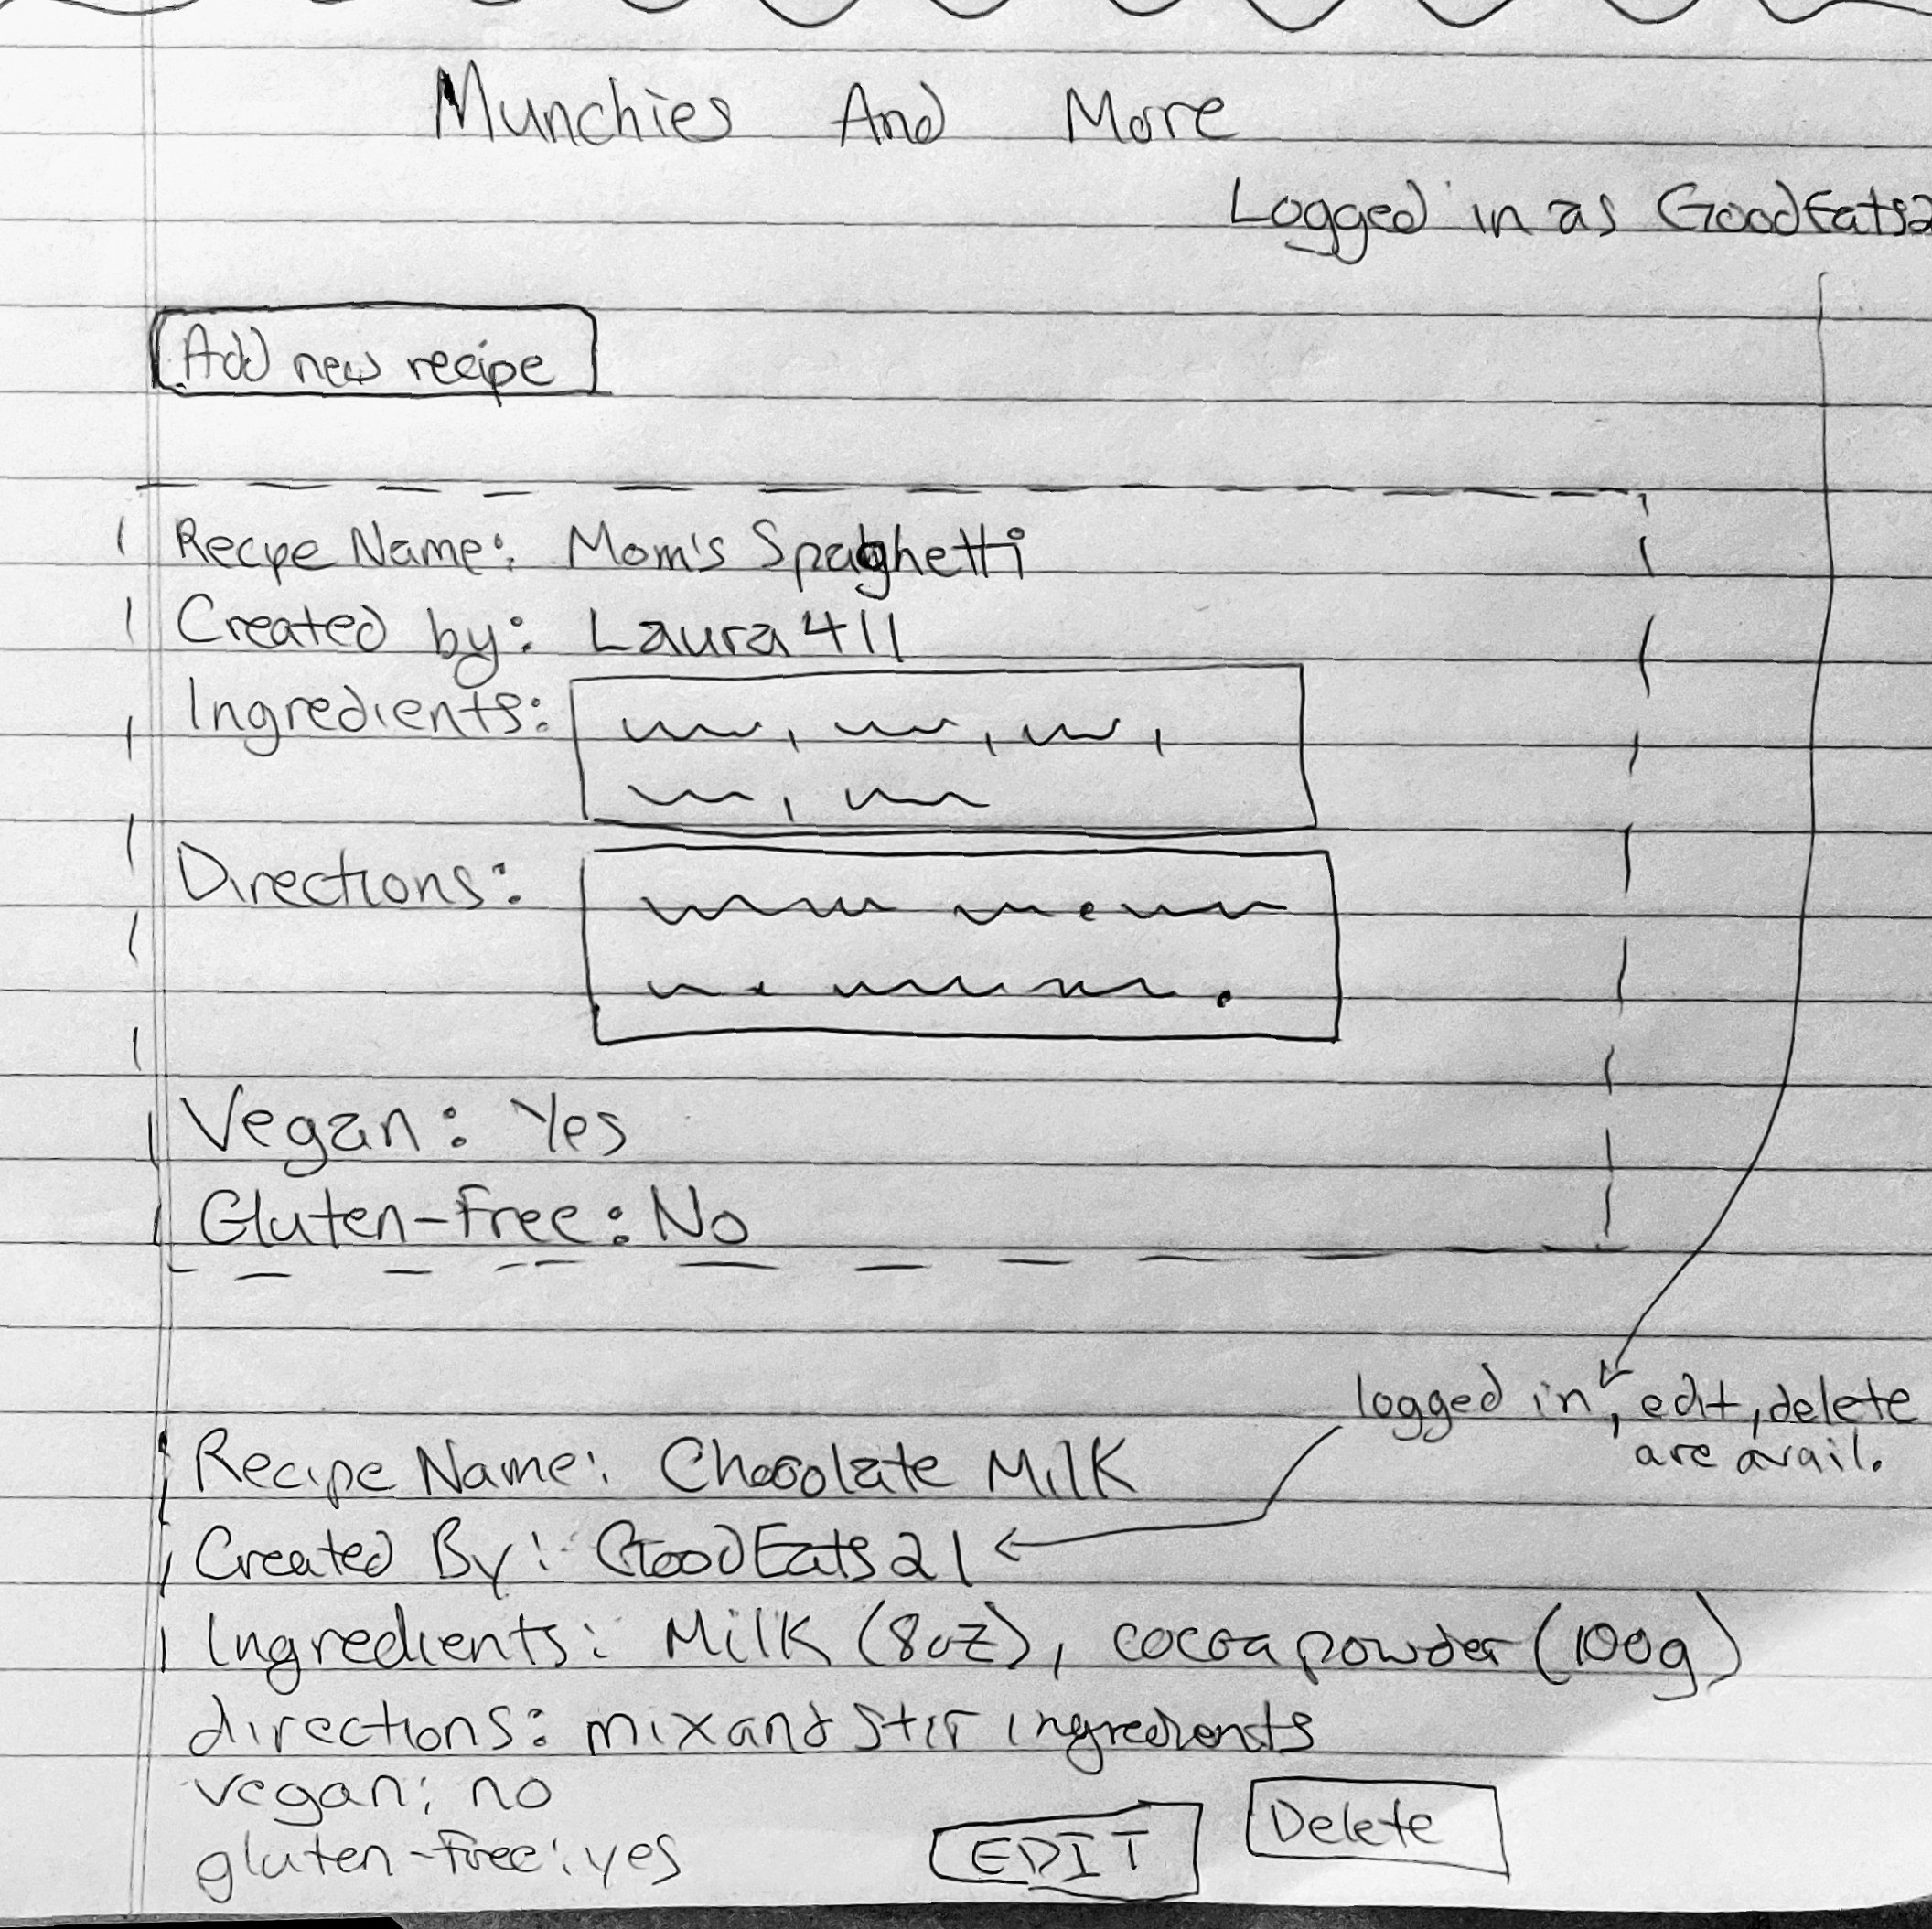 Munchies And More
Logged in as GoodEats2
Add new recipe
Recipe Name: Mom's Spaghetti
Created by: Laura411
Ingredients:
Directions:
Vegan: Yes
Gluten-Free: No
logged in, edit, delete
are avail.
Recipe Name: Chocolate Milk
Created By: GoodEats21
Ingredients: Milk (8oz), cocoa powder (100g)
directions: mix and stir ingredients
vegan: no
gluten-free: yes
EDIT
Delete